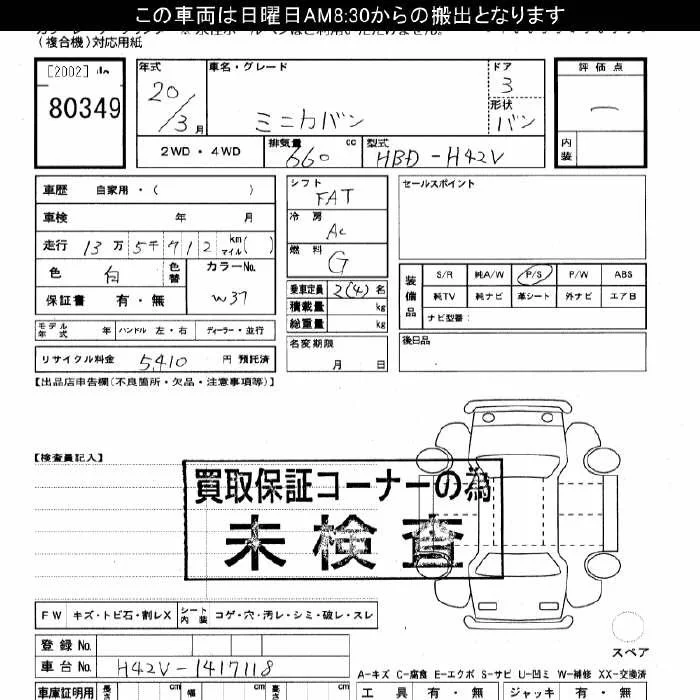 この車両は日曜日AM8:30からの搬出となります
(複合機)対応用紙
[2002]
80349
年式 20/3月
車名・グレード ミニカバン
ドア 3
形状 バン
評価点 —
内装
2WD・4WD
排気量 660 cc
型式 HBD-H42V
車歴 自家用・( )
車検 年 月
走行 13万5千912 km マイル( )
色 白 色替 カラーNo. W37
保証書 有・無
モデル年式 年 ハンドル 左・右 ディーラー・並行
リサイクル料金 5,410 円 預託済
シフト FAT
冷房 AC
燃料 G
乗車定員 2(4) 名
積載量 kg
総重量 kg
名変期限 月 日
セールスポイント
装備品
S/R 純A/W P/S P/W ABS
純TV 純ナビ 革シート 外ナビ エアB
ナビ型番:
後日品
【出品店申告欄(不良箇所・欠品・注意事項等)】
【検査員記入】
買取保証コーナーの為
未検査
FW キズ・トビ石・割レX シート内装 コゲ・穴・汚レ・シミ・破レ・スレ
登録No.
車台No. H42V-1417118
スペア
A-キズ C-腐食 E-エクボ S-サビ U-凹ミ W-補修 XX-交換済
車庫証明用 長さ cm 幅 cm 高さ cm
工具 有・無 ジャッキ 有・無